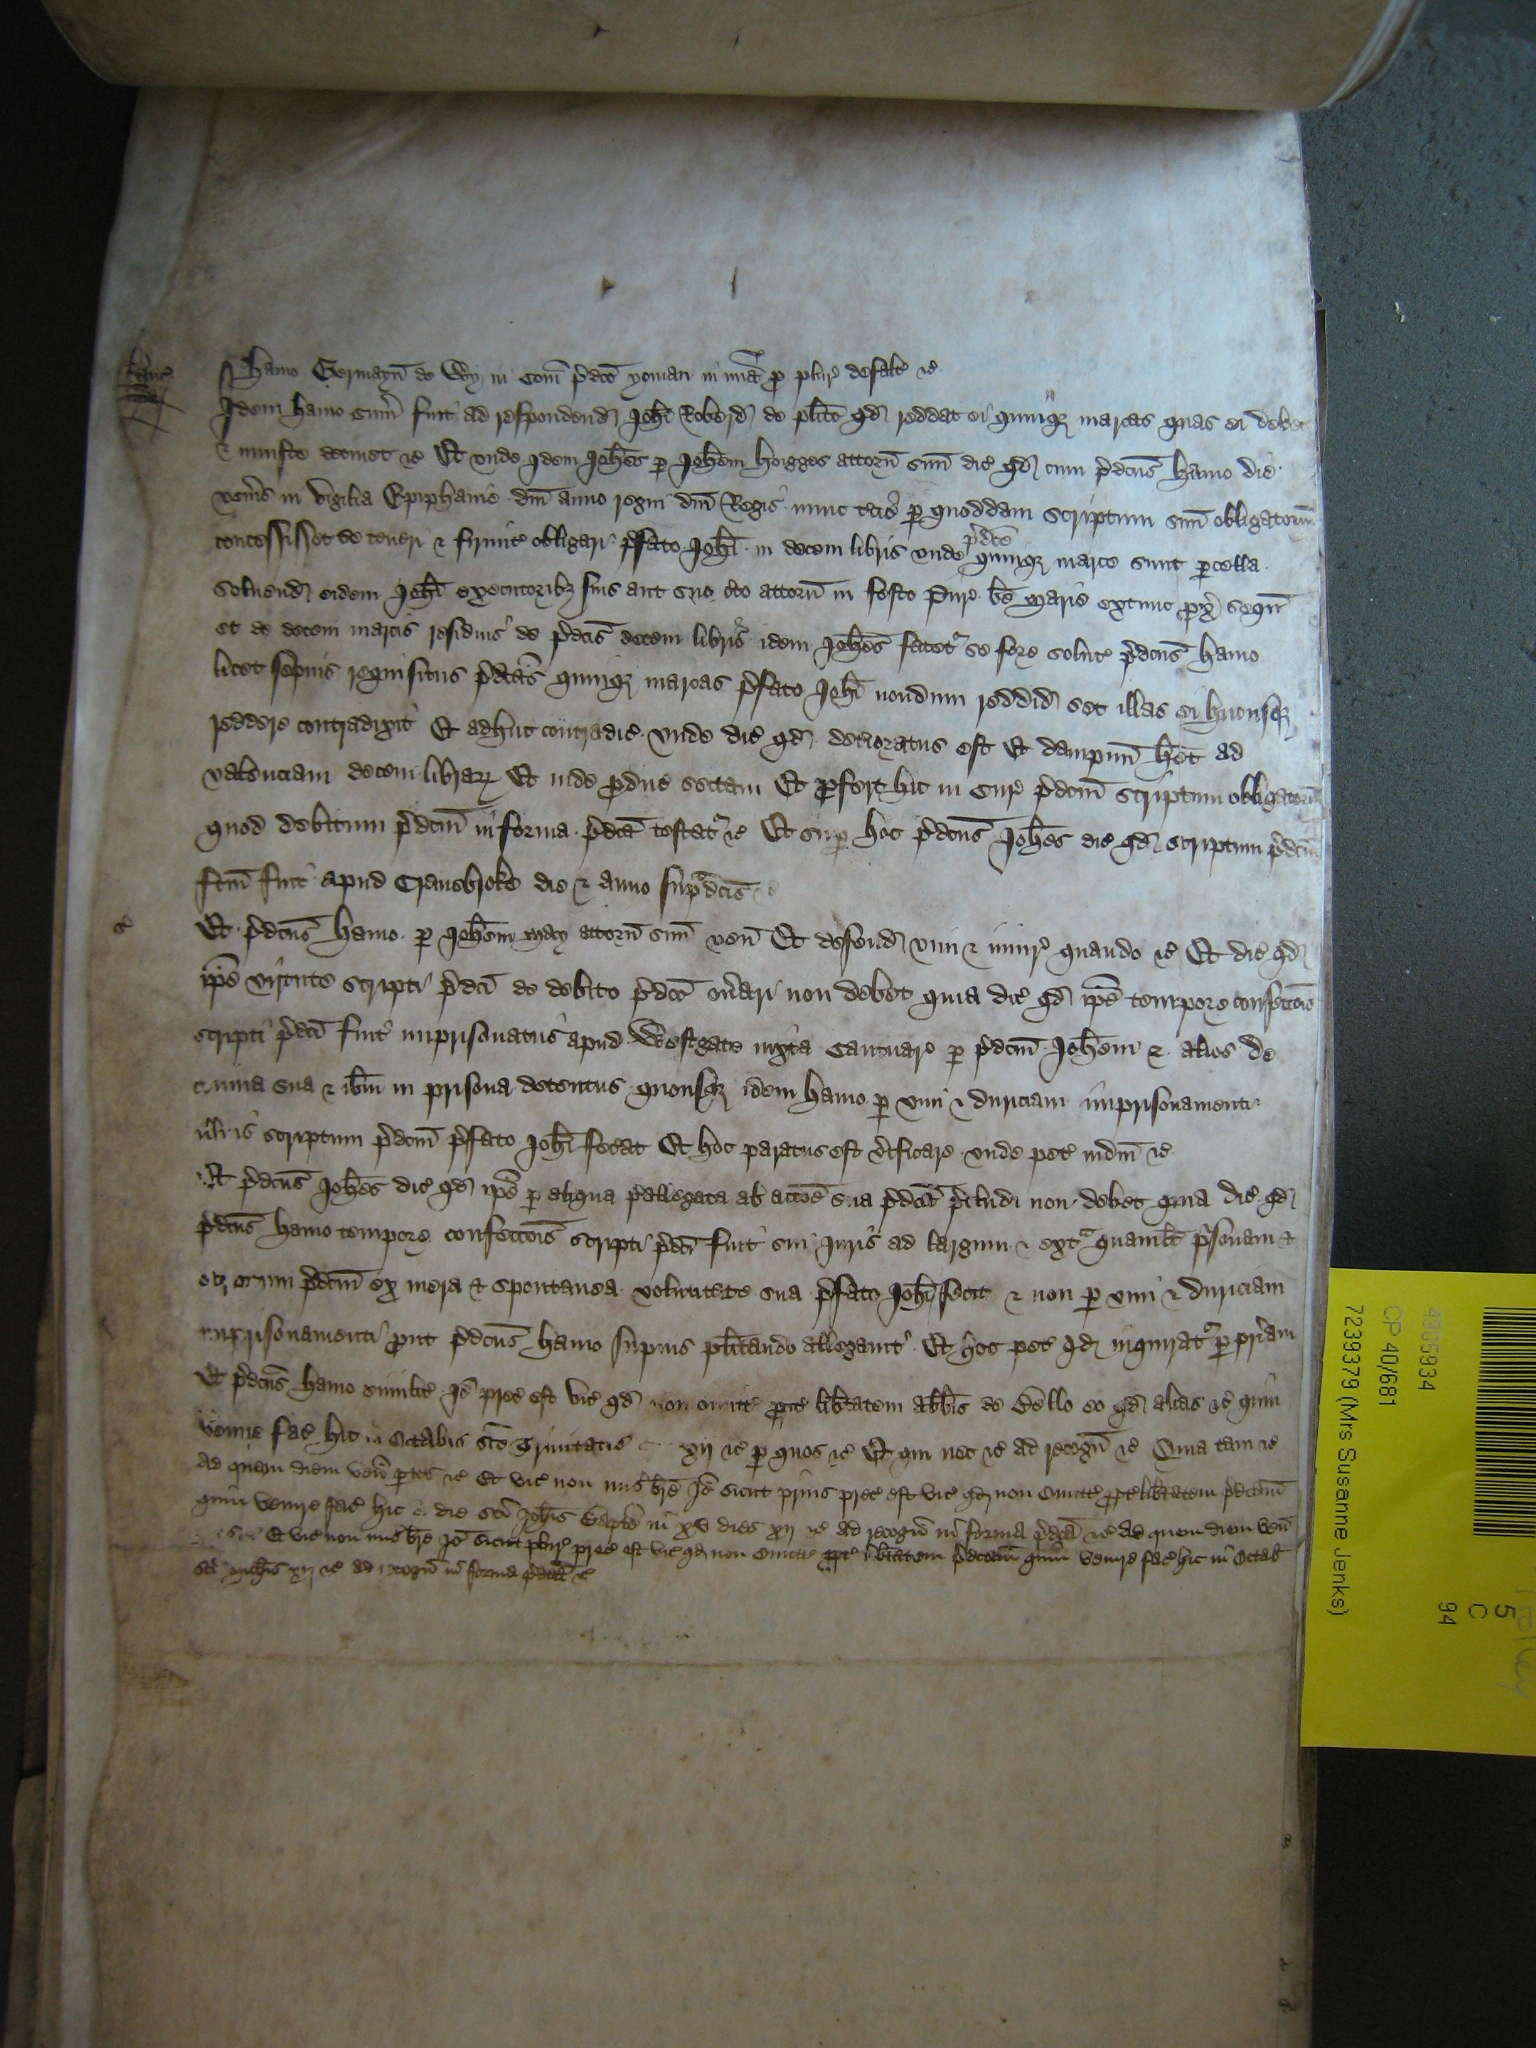 Kanc
Hamo Germayn de Wy in Com p̄dco yoman in mīa p plur defalt ꝛc
Idem Hamo sum̄ fuit ad respondend Joħi Roberd de plito qd reddat ei quinqꝫ marcas quas ei debet
⁊ iniuste detinet ꝛc Et unde idem Joħes p Joħem Hogges attorn suū dic qd cum p̄dcus Hamo die
ven̄is in vigilia Epiphanie dn̄i anno regni dn̄i Regis nunc p quoddam scriptum suū obligatoriū
concessisset se teneri ⁊ firmit obligari p̄fato Joħi in decem libris unde p̄dce quinqꝫ marce sunt pcella
soluend eidem Joħi executoribꝫ suis aut suo attorn in festo Pur be Marie extunc px sequn
et de decem marcis residuis de p̄dcis decem libris idem Joħes fatetr se fore solut p̄dcus Hamo
licet sepius requisitus p̄dcas quinqꝫ marcas p̄fato Joħi nondum reddid set illas ei hucusqꝫ
reddere contradixit Et adhuc contradic unde dic qd deterioratus est Et dampnū het ad
valenciam decem librarꝫ Et inde pduc sectam Et pfert hic in Cur p̄dcm scriptum obligatoriū
quod debitum p̄dcm in forma p̄dca testatr ꝛc Et sup hoc p̄dcus Joħes dic qd scriptum p̄dcm
fcm fuit apud Cranebroke die ⁊ anno sup̄dcis
Et p̄dcus Hamo p Joħem May attorn suū ven Et defend vim ⁊ iniur quando ꝛc Et dic qd
ipe virtute scripti p̄dci de debito p̄dco on̄ari non debet quia dic qd ipe tempore confeccois
scripti p̄dci fuit imprisonatus apud Westgate iuxta Cantuar p p̄dcm Joħem ⁊ alios de
covina sua ⁊ ibm in prisona detentus quousqꝫ idem Hamo p vim ⁊ duriciam imprisonamenti
scriptum p̄dcm p̄fato Joħi fecat Et hoc paratus est v̄ificare unde pet iudm ꝛc
Et p̄dcus Joħes dic qd ipe p aliqua p̄allegata ab accoe sua p̄dca p̄cludi non debet quia dic qd
p̄dcus Hamo tempore confeccois scripti p̄dci fuit sui iuris ad largum ⁊ extra quamlt p̄sonam ⁊
p̄dcm ex mera ⁊ spontanea voluntate sua p̄fato Joħi fecit ⁊ non p vim ⁊ duriciam
imprisonamenti prout p̄dcus Hamo supius plitando allegauit Et hoc pet qd inquiratr p pr̄iam
Et p̄dcus Hamo similit Io prec est vic qd non omitt ppt lib̄tatem abbis de Bello eo qd alias ꝛc quin
venire fac hic in Octabis sce Trinitatis xij ꝛc p quos ꝛc Et qui nec ꝛc ad recogn ꝛc Quia tam ꝛc
ad quem diem ven ptes ꝛc Et vic non mis bre Io sicut prius prec est vic qd non omitt ppt lib̄tatem p̄dcam
quin venire fac hic a die sci Joħis Bapte in xv dies xij ꝛc ad recogn in forma p̄dca ꝛc Ad quem diem ven
Et vic non mis bre Io sicut plur prec est vic qd non omitt ppt lib̄tatem p̄dcam quin venire fac hic in Octab
sci Micħis xij ꝛc ad recogn in forma p̄dca ꝛc
4905934
CP 40/681
7239379 (Mrs Susanne Jenks)
5
C
94